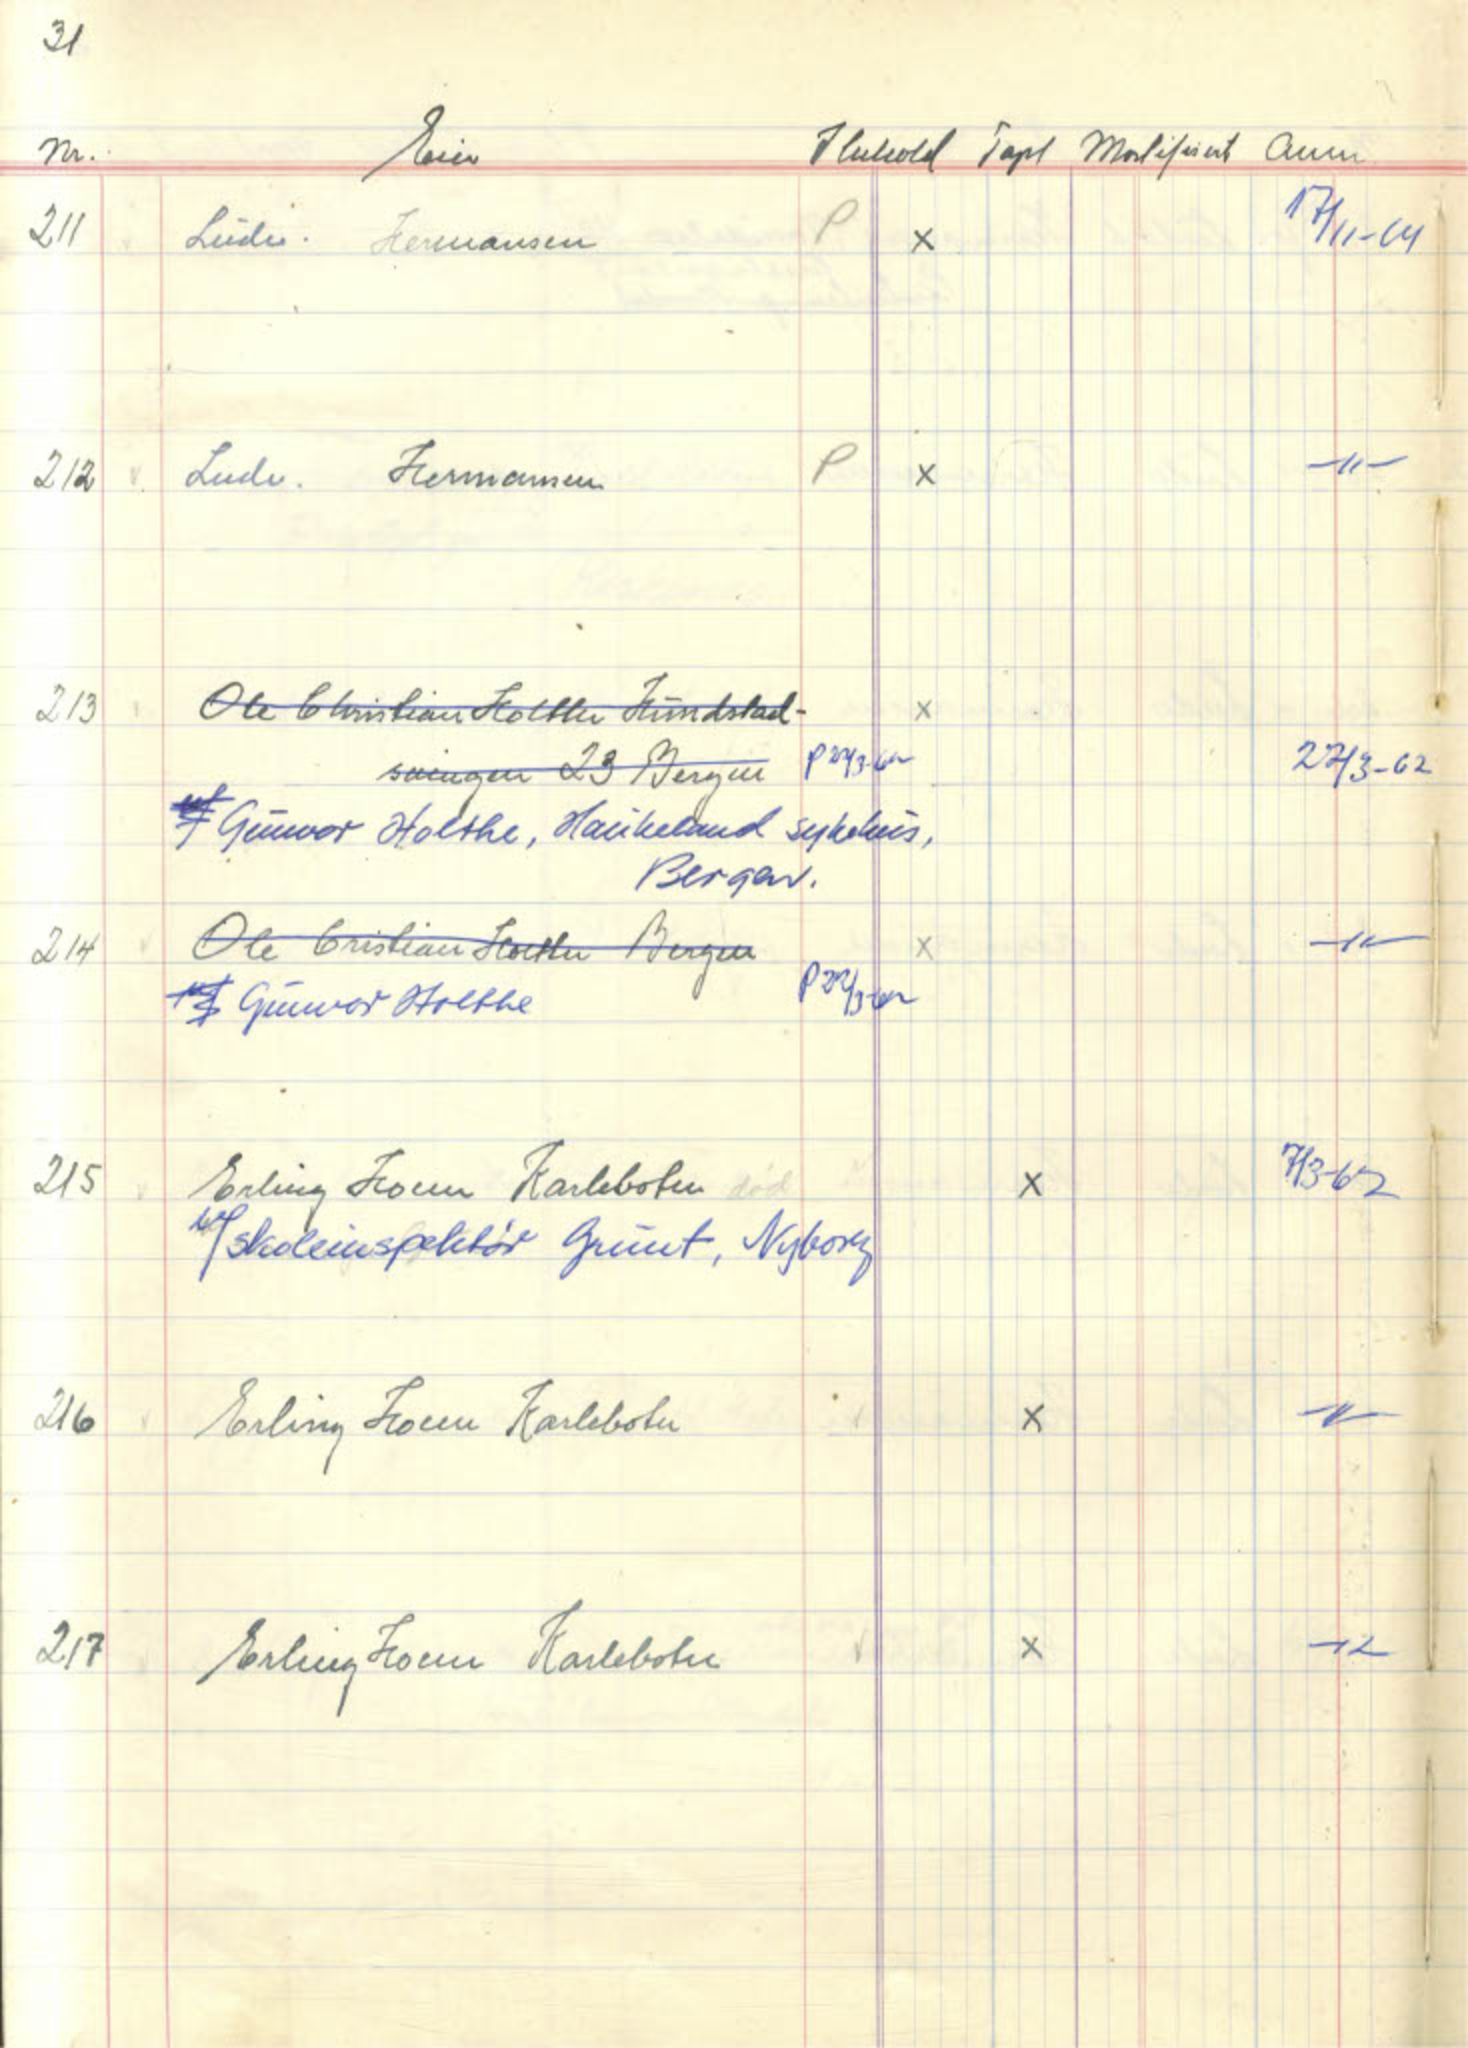 31
Nr. Eier Ihuhold Tapt Mortifisert Anm
211 Ludv. Hermansen P x 17/11-64
212 v. Ludv. Hermansen P x -"-
213 Ole Christian Holthe Hundstad- x
svingen 23 Bergen P 27/3-62 27/3-62
Gunvor Holthe, Haukeland sykehus,
Bergen.
214 v Ole Cristian Holthe Bergen x -"-
Gunvor Holthe P 27/3-62
215 v Erling Hoem Karlebotn død x 7/3-62
v/skoleinspektør Grunt, Nyborg
216 v Erling Hoem Karlebotn v x -"-
217 v Erling Hoem Karlebotn v x -"-